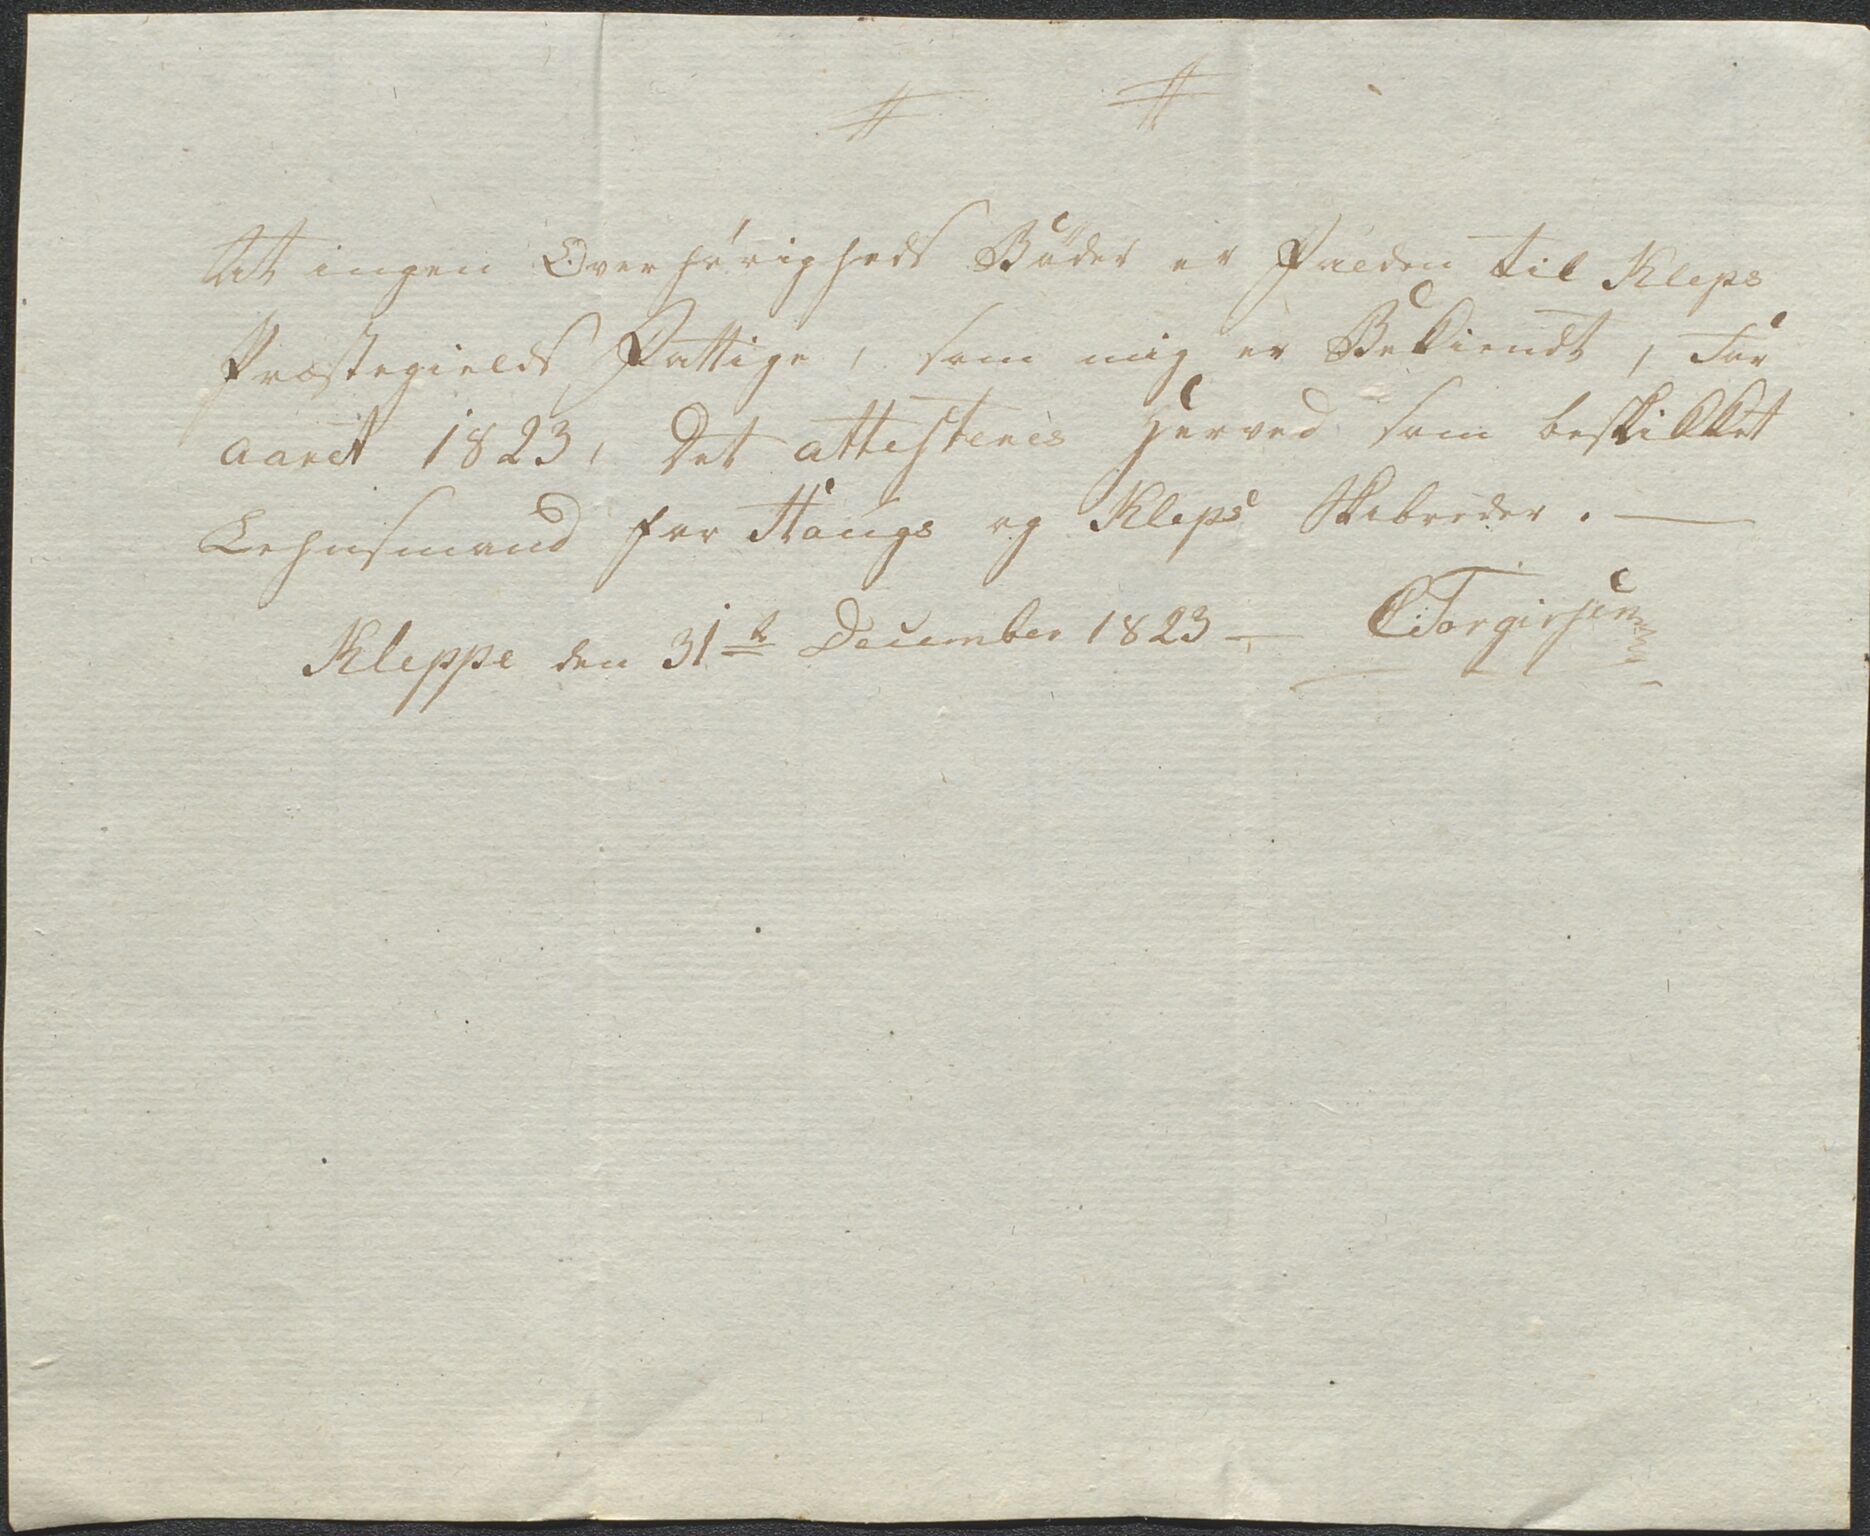 At ingen Overhørigheds Bøder er Falden til Kleps
Præstegields Fattige, som mig er Bekiendt, For
aaret 1823, Det attesteres Herved som beskikket
Lehnsmand for Haugs og Kleps Skibreder. —
Kleppe den 31te December 1823 — Torgirsen